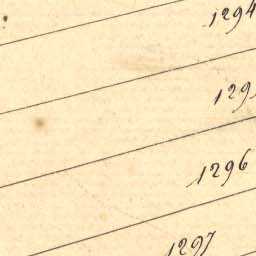 1294
129
1296
1297